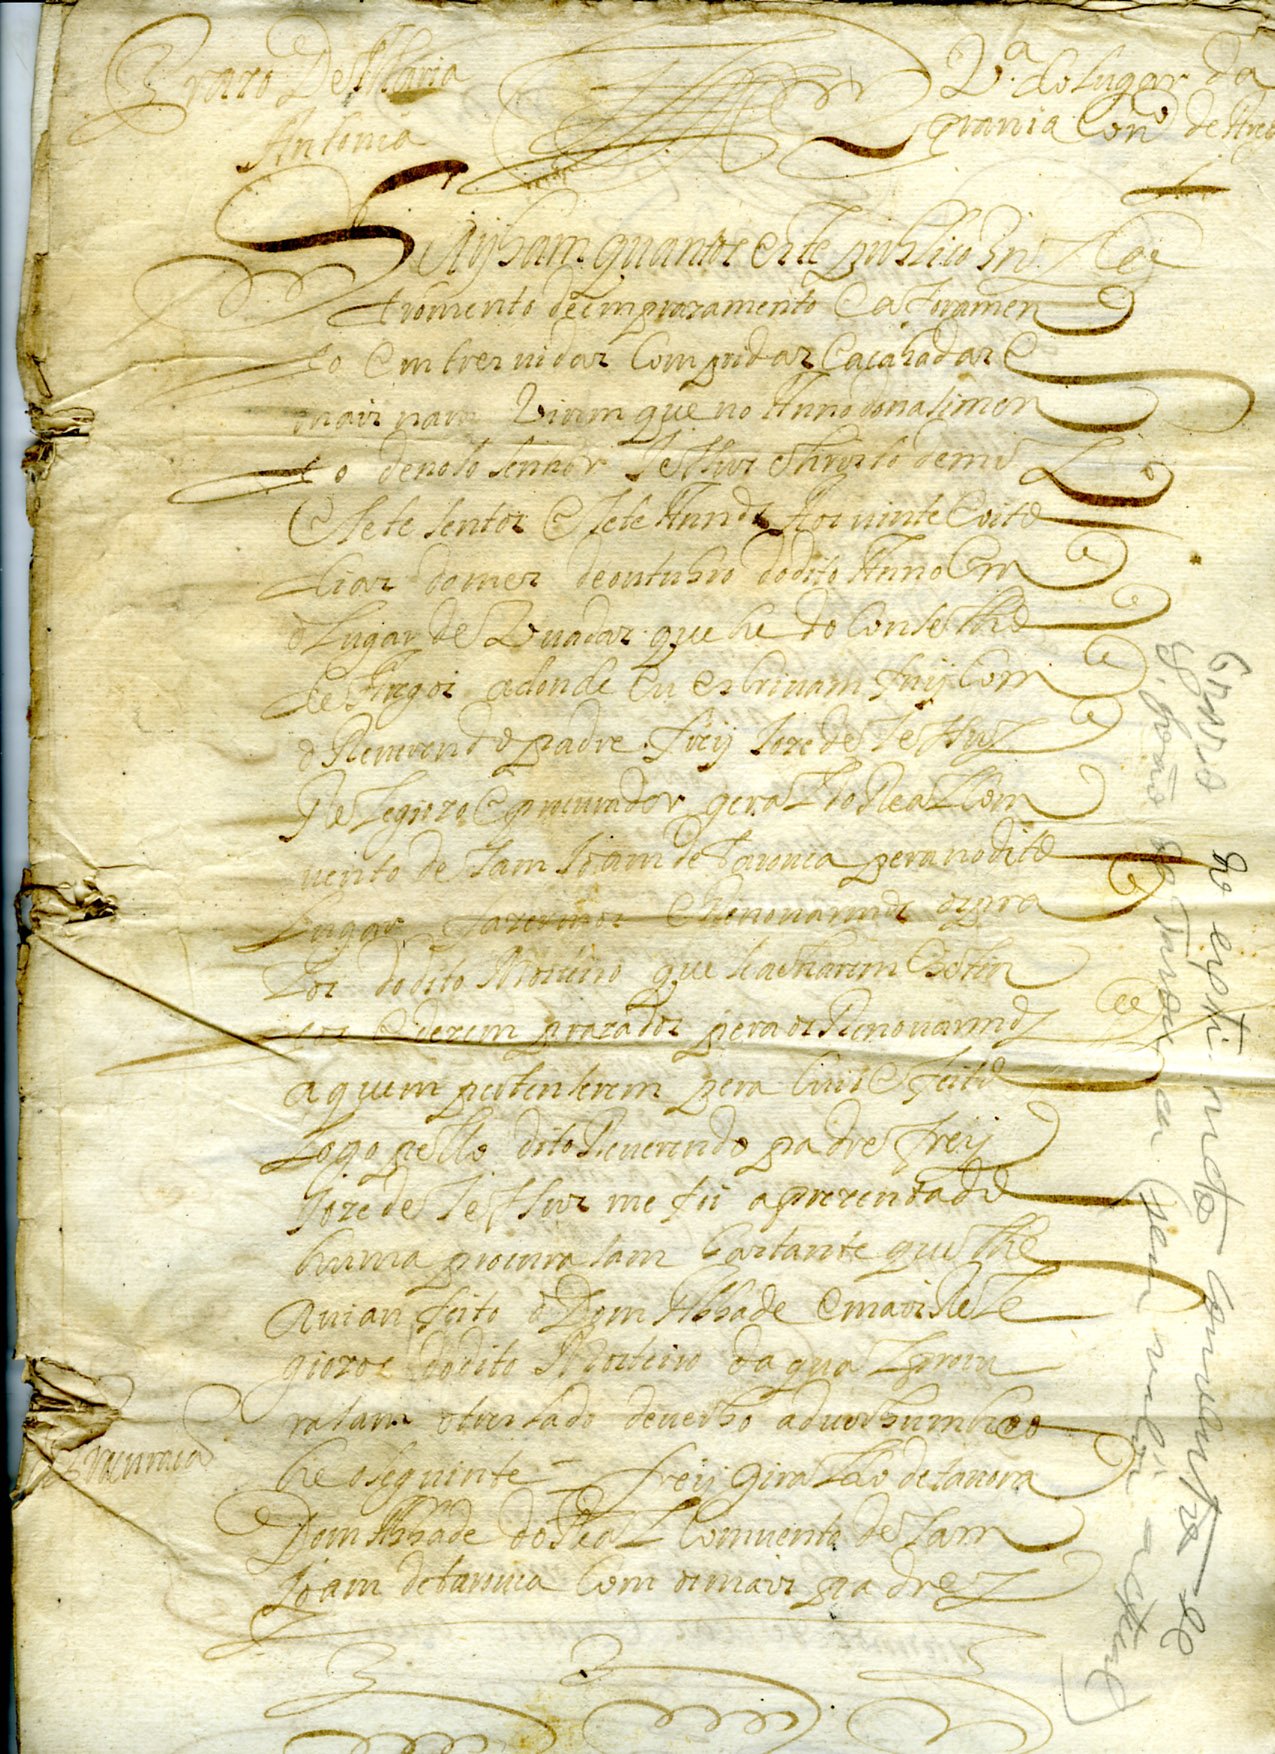 Prazo De Maria V.ª do lugar da
Antonia Con.º de
Saybam quantos este publico in
stromento de emprazamento e aforamen
to em tres vidas compridas e acabadas e
mais nam virem que no Anno do nasimen
to de noso senhor Jeshus christo de mil
e sete sentos e sete Annos Aos vinte e oito
dias do mes de outubro do dito Anno em
o lugar de que he do conselho
de Aregos adonde eu escrivam fuy com
o Reverendo padre frey Joze de Jeshus
Relegiozo e procurador geral do Real Com
vento de Sam Joam de Tarouca pera no dito
lugar fazermos e Renovarmos os pra
zos do dito Mosteiro que se acharem extin
tos e derem prazados pera os Renovarmos
a quem pertenserem pera cujo efeito
Logo pello dito Reverendo padre frey
Joze de Jeshus me foi aprezentado
huma procurasam bastante que lhe
avian feito o Dom Abbade e mais Rele
giozos do dito Mosteiro da qual procu
rasam o treslado de verbo a d verbum
he o seguinte = frey Giraldo de tavora
Dom Abbade do Real Comvento de Sam
Joam de tarouca com os mais padres
Procurasa
do extinto convento de
S. João de Tarouca (sem valor actual)